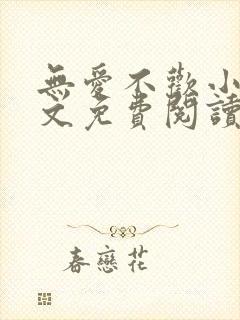 無愛不歡小
文免費閱讀
春戀花